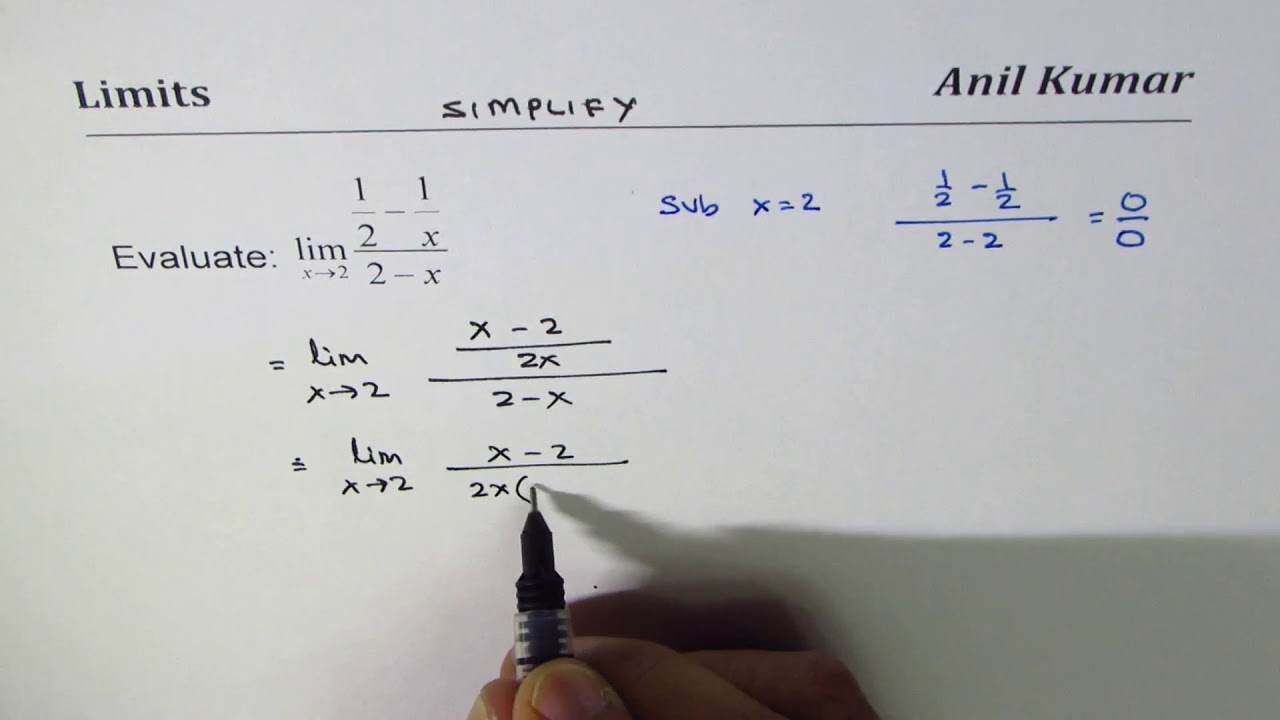 Limits
SIMPLIFY
Anil Kumar
Evaluate: lim x→2 (1/2 − 1/x)/(2 − x)
Sub x=2 (1/2 - 1/2)/(2-2) = 0/0
= lim x→2 ((x - 2)/2x)/(2-x)
= lim x→2 (x - 2)/(2x(